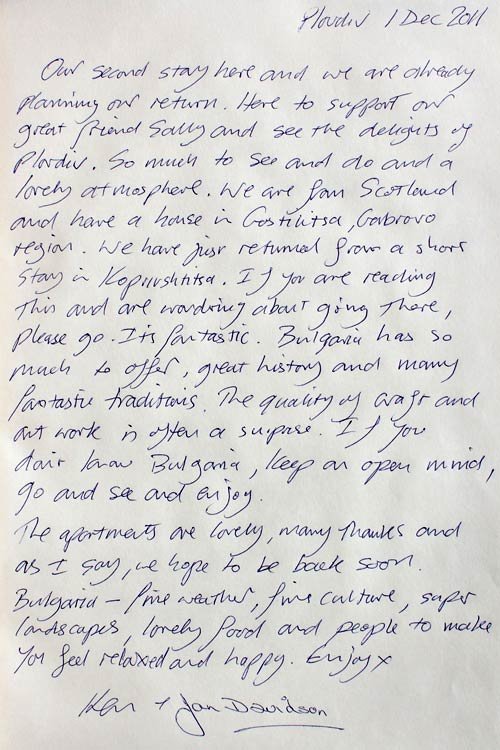 Plovdiv 1 Dec 2011
Our second stay here and we are already
planning our return. Here to support our
great friend Sally and see the delights of
Plovdiv. So much to see and do and a
lovely atmosphere. We are from Scotland
and have a house in Gostilitsa, Gabrovo
region. We have just returned from a short
stay in Koprivshtitsa. If you are reading
this and are wondring about going there,
please go. Its fantastic. Bulgaria has so
much to offer, great history and many
fantastic traditions. The quality of craft and
art work is often a surprise. If you
don't know Bulgaria, keep an open mind,
go and see and enjoy.
The apartments are lovely, many thanks and
as I say, we hope to be back soon.
Bulgaria – fine weather, fine culture, super
landscapes, lovely food and people to make
you feel relaxed and happy. Enjoy x
Ken + Jan Davidson